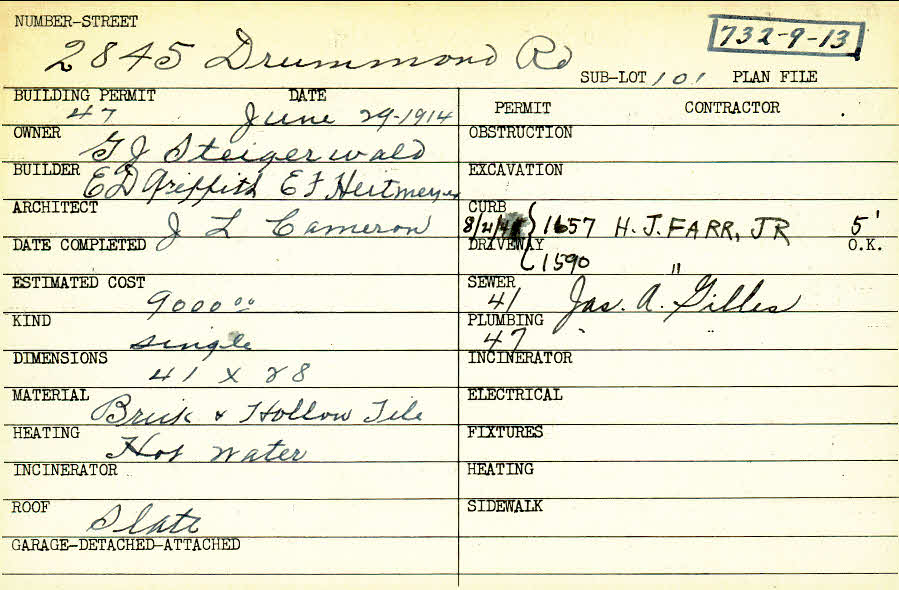 NUMBER-STREET
2845 Drummond Rd
732-9-13
SUB-LOT 101 PLAN FILE
BUILDING PERMIT DATE
47 June 29-1914
PERMIT CONTRACTOR
OWNER
G J Steigerwald
OBSTRUCTION
BUILDER
E D Griffith E F Heitmeyer
EXCAVATION
ARCHITECT
J L Cameron
CURB
1657 H. J. FARR, JR 5'
DATE COMPLETED
DRIVEWAY O.K.
1590 "
ESTIMATED COST
9000 00
SEWER
41 Jas. A. Gilles
KIND
single
PLUMBING
47 " "
DIMENSIONS
41 x 28
INCINERATOR
MATERIAL
Brick & Hollow Tile
ELECTRICAL
HEATING
Hot water
FIXTURES
INCINERATOR
HEATING
ROOF
Slate
SIDEWALK
GARAGE-DETACHED-ATTACHED